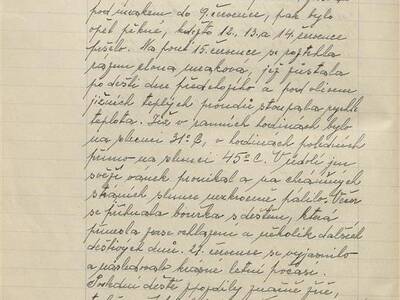 pod mrakem do 9. července, pak bylo
opět pěkně, když 12. 13. a 14. července
pršelo. Na pouť 15. července se
clona mraková, jež zůstala
po dešti dne předešlého a pod vlivem
jižních teplých proudů stoupala rychle
teplota. Již v ranních hodinách bylo
na slunci 31° C, v hodinách poledních
přímo na slunci 45° C. V údolí jen
svěží vánek pronikal a na chráněných
stráních slunce neskrovně pálilo. Večer
se přihnala bouřka s deštěm, která
přinesla zase ochlazení a několik dalších
deštivých dnů. 21. července se vyjasnilo
a následovalo krásné letní počasí.
deště zpozdily značně žně,